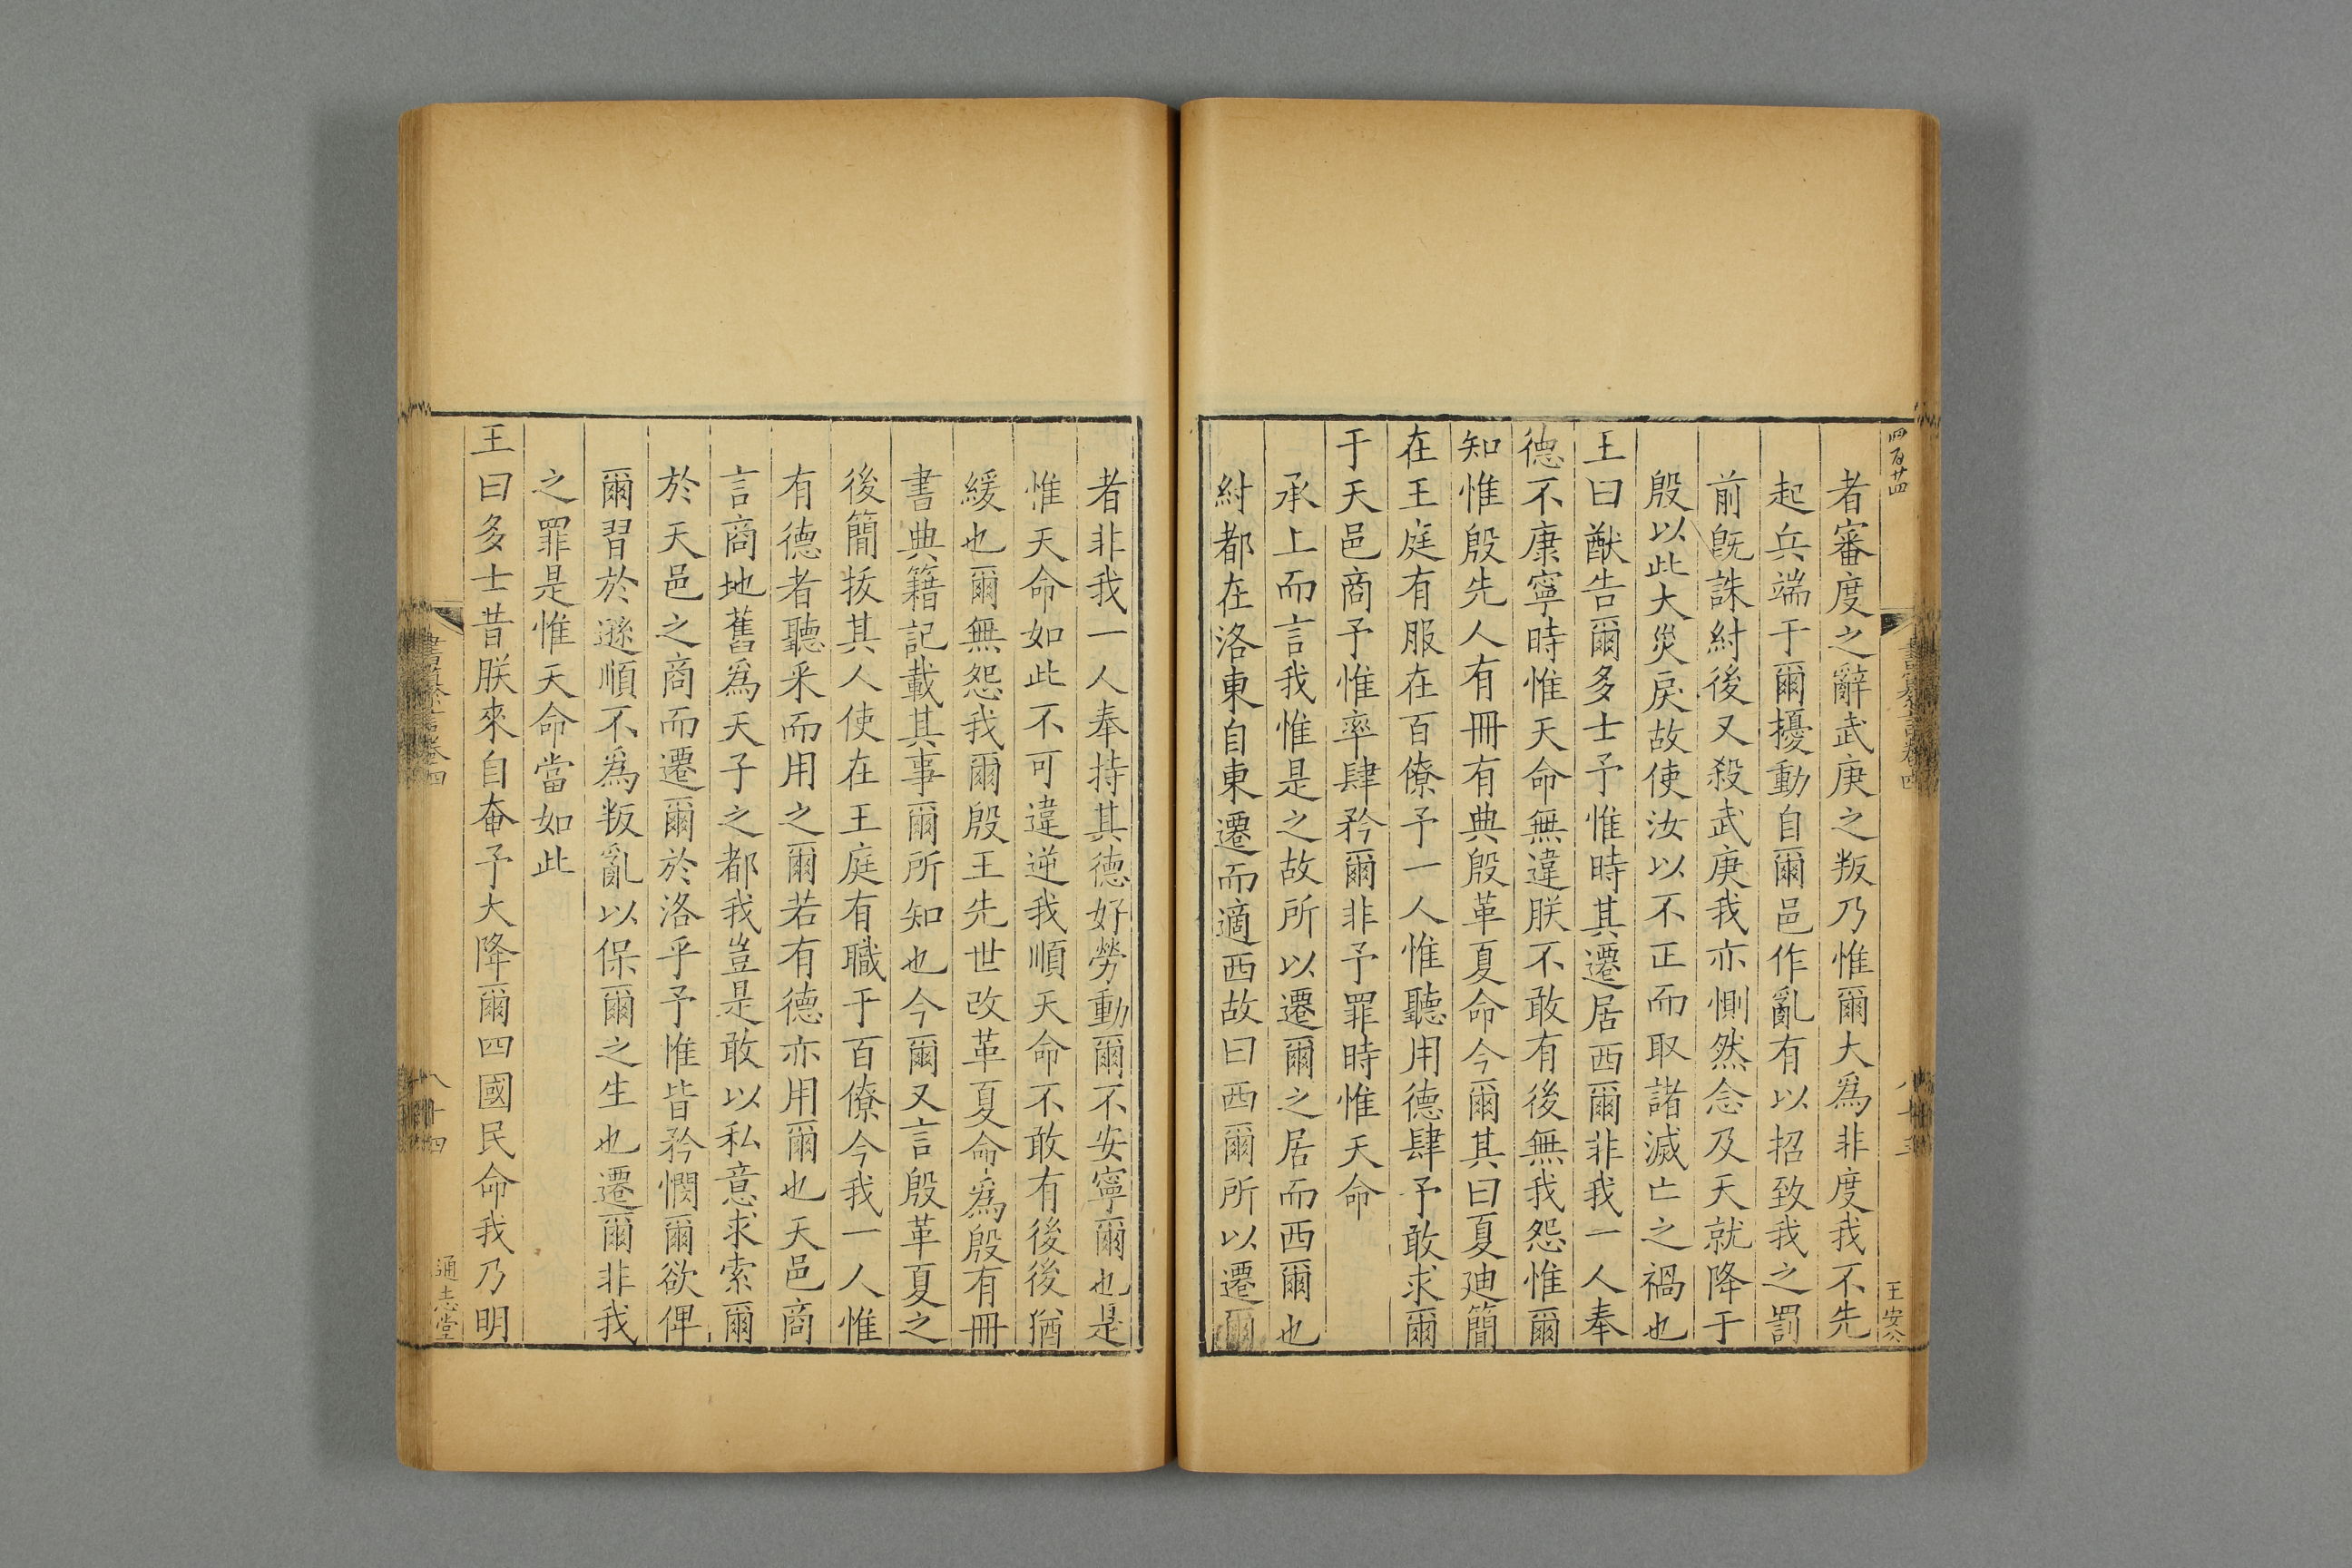 四百廿四
王安公
者審度之辭武庚之叛乃惟爾大爲非度我不先
起兵端于爾擾動自爾邑作亂有以招致我之罰
前旣誅紂後又殺武庚我亦惻然念及天就降于
殷以此大災戾故使汝以不正而取諸滅亡之禍也
王曰猷告爾多士予惟時其遷居西爾非我一人奉
德不康寧時惟天命無違朕不敢有後無我怨惟爾
知惟殷先人有冊有典殷革夏命今爾其曰夏迪簡
在王庭有服在百僚予一人惟聽用德肆予敢求爾
于天邑商予惟率肆矜爾非予罪時惟天命
承上而言我惟是之故所以遷爾之居而西爾也
紂都在洛東自東遷而適西故曰西爾所以遷爾
者非我一人奉持其德好勞動爾不安寧爾也是
惟天命如此不可違逆我順天命不敢有後後猶
緩也爾無怨我爾殷王先世改革夏命爲殷有冊
書典籍記載其事爾所知也今爾又言殷革夏之
後簡拔其人使在王庭有職于百僚今我一人惟
有德者聽采而用之爾若有德亦用爾也天邑商
言商地舊爲天子之都我豈是敢以私意求索爾
於天邑之商而遷爾於洛乎予惟皆矜憫爾欲俾
爾習於遜順不爲叛亂以保爾之生也遷爾非我
之罪是惟天命當如此
王曰多士昔朕來自奄予大降爾四國民命我乃明
卷四
八十四
通志堂